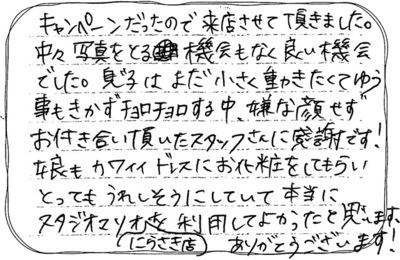 キャンペーンだったので来店させて頂きました。
中々写真をとる機会もなく良い機会
でした。息子はまだ小さく動きたくてゆう
事もきかずチョロチョロする中、嫌な顔せず
お付き合い頂いたスタッフさんに感謝です!
娘もカワイイドレスにお化粧をしてもらい
とってもうれしそうにしていて本当に
スタジオマリオを利用してよかったと思います。
にらさき店 ありがとうございます!